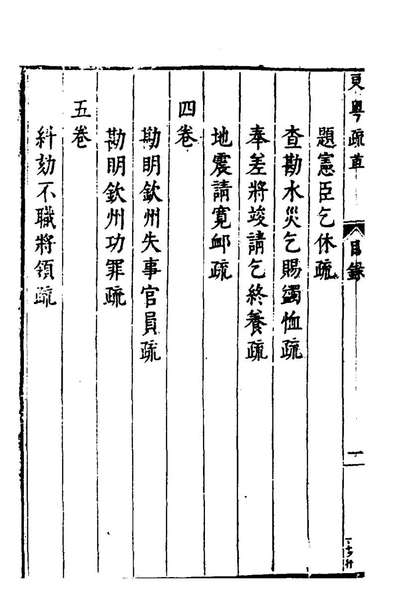 東粤疏草
目錄
一
題憲臣乞休疏
查勘水災乞賜蠲恤疏
奉差將竣請乞終養疏
地震請寬䘏疏
四卷
勘明欽州失事官員疏
勘明欽州功罪疏
五卷
糾劾不職將領疏